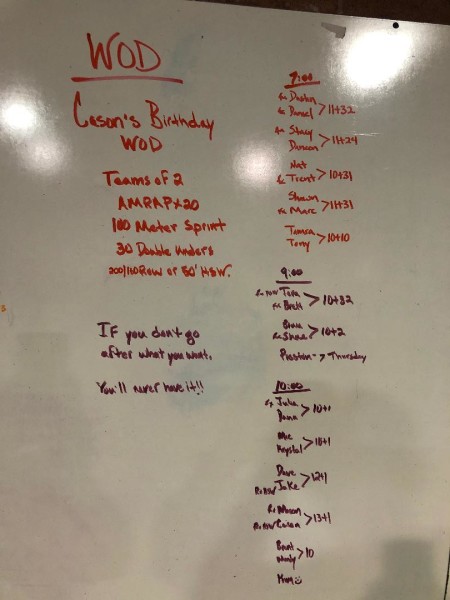 WOD
Cason's Birthday
WOD
Teams of 2
AMRAP x 20
100 Meter Sprint
30 Double Unders
200/150 Row or 50' HSW.
IF you don't go
after what you want,
You'll never have it!!
7:00
Rx Dustin
Rx Daniel > 11+32
Rx Stacy
Duncan > 11+24
Nat
Rx Trent > 10+31
Shawn
Rx Marc > 11+31
Tamra
Tony > 10+10
9:00
Tara
Rx Brett > 10+32
Rx Shane > 10+2
Preston -> Thursday
10:00
Rx Julie
Dana > 10+1
Krystal > 10+1
Dave
Jake > 12+1
Rx Mason
Cason > 13+1
Brant
> 10